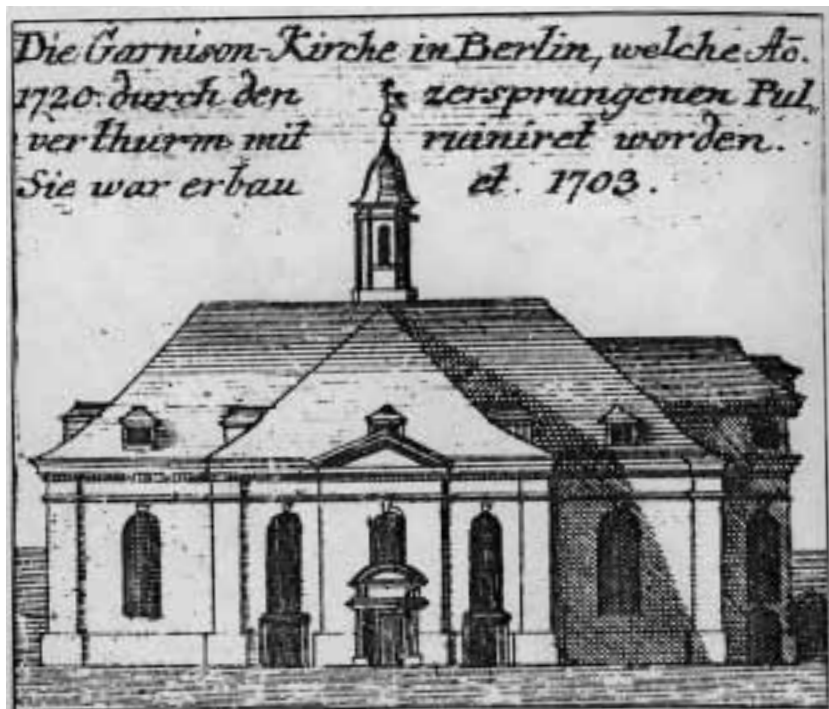 Die Garnison-Kirche in Berlin, welche Aō.
1720. durch den zersprungenen Pul„
verthurm mit ruiniret worden.
Sie war erbau et. 1703.